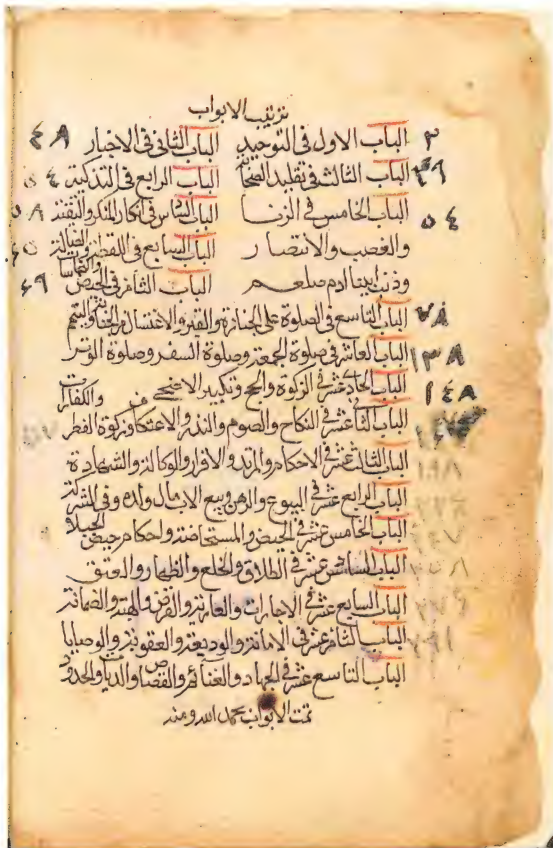 ترتيب الابواب
٢ الباب الاول في التوحيد الباب الثاني في الاخبار ٤٨
٤٩ الباب الثالث في تقليد الباب الرابع في التذكية ٥٤
٥٤ الباب الخامس في الزنا الباب السادس في انكار المنكر ٥٨
والغصب والانتصار الباب السابع في اللقطة
وذنب ابينا ادم صلعم الباب الثامن في الحيض ٦٩
٧٨ الباب التاسع في الصلوة على الجنازة والقبر والاغتسال من الجنابة والتيمم
١٣٨ الباب العاشر في صلوة الجمعة وصلوة السفر وصلوة الوتر
١٤٨ الباب الحادي عشر في الزكوة والحج وتكبير الاضحى والكفارات
الباب الثاني عشر في النكاح والصوم والنذر والاعتكاف وزكوة الفطر
١٩٨ الباب الثالث عشر في الاحكام والمرتد والاقرار والوكالة والشهادة
الباب الرابع عشر في البيوع والرهن وبيع الاب مال ولده وفي الشركة
٢٤٧ الباب الخامس عشر في الحيض والمستحاضة واحكام حيض الحبلى
٢٥٨ الباب السادس عشر في الطلاق والخلع والظهار والعتق
٢٧٦ الباب السابع عشر في الاجارات والعارية والقرض والهبة والضمانة
٢٩١ الباب الثامن عشر في الامانة والوديعة والعقوبة والوصايا
الباب التاسع عشر في الجهاد والغنائم والقصاص والديات والحدود
تمت الابواب بحمد الله ومنه